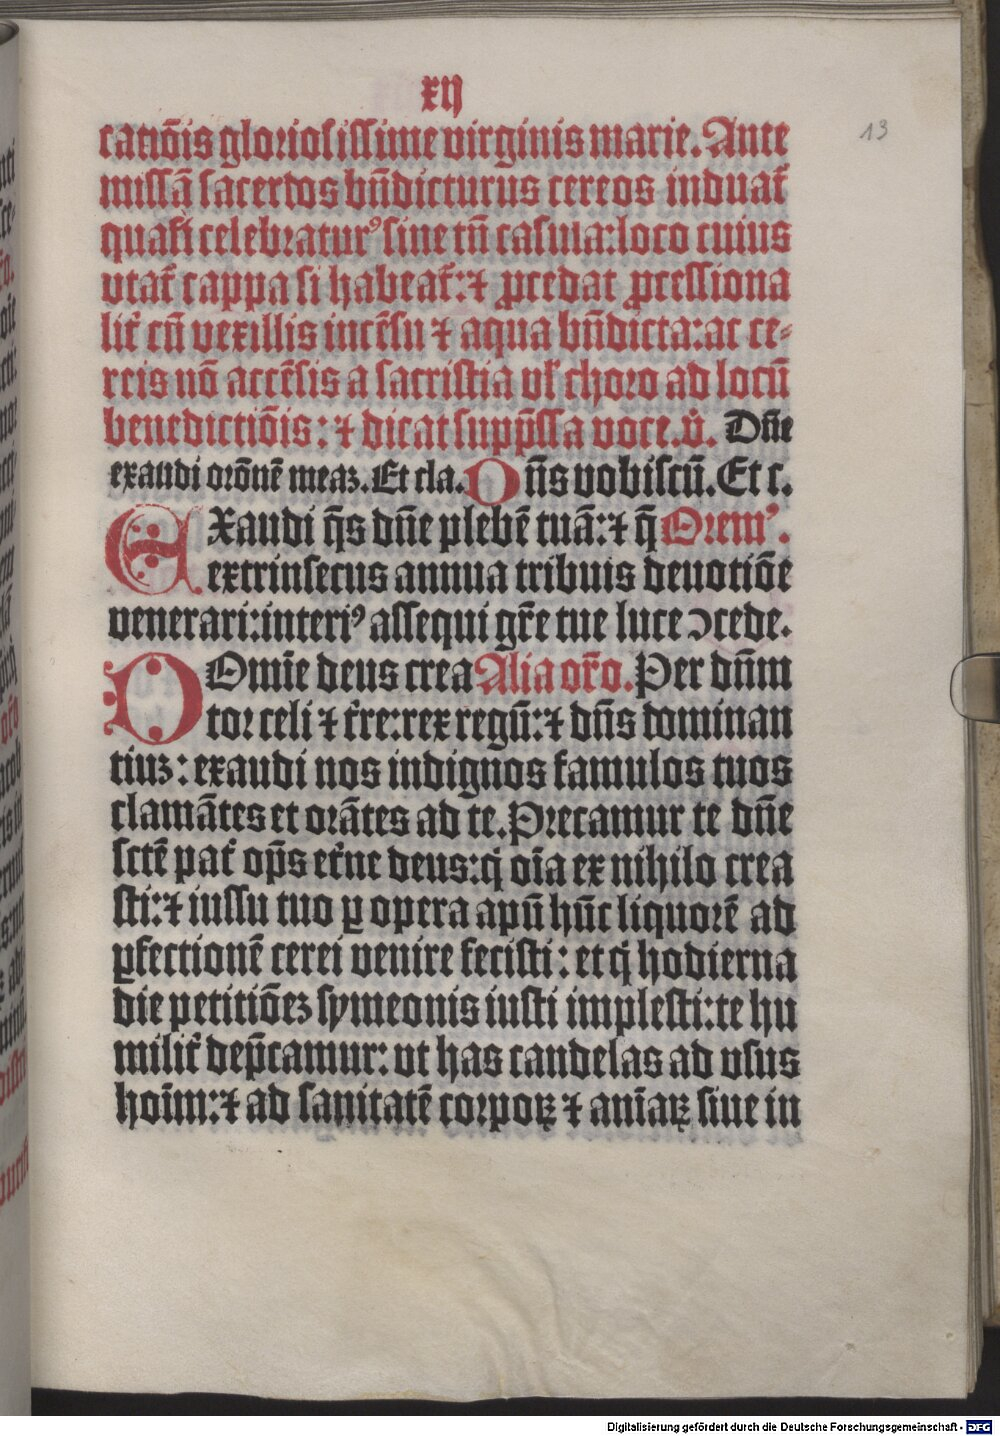 xij
13
catiōis gloriosissime virginis marie. Ante
missā sacerdos bn̄dicturus cereos induat᷑
quasi celebratur⁹ sine tn̄ casula: loco cuius
vtat᷑ cappa si habeat᷑: ⁊ ꝓcedat ꝓcessiona
lit᷑ cū vexillis incēsu ⁊ aqua bn̄dicta: ac ce⸗
reis nō accēsis a sacristia vl᷑ choro ad locū
benedictiōis: ⁊ dicat supp̄ssa voce. v̄. Dn̄e
exaudi orōnē meaꝫ. Et cla. Dn̄s vobiscū. Et c.
EXaudi q̄s dn̄e plebē tuā: ⁊ q̄ Orem⁹.
extrinsecus annua tribuis deuotiōe
venerari: interi⁹ assequi gr̄e tue luce ꝯcede.
DOmīe deus crea Alia or̄o. Per dn̄m
tor celi ⁊ t᷑re: rex regū: ⁊ dn̄s dominan
tiuꝫ: exaudi nos indignos famulos tuos
clamātes et orātes ad te. Precamur te dn̄e
sctē pat᷑ op̄s et᷑ne deus: q̇ oīa ex nihilo crea
sti: ⁊ iussu tuo ꝑ opera apū hūc liquorē ad
ꝑfectionē cerei venire fecisti: et q̇ hodierna
die petitiōeꝫ symeonis iusti implesti: te hu
milit᷑ dep̄camur: vt has candelas ad vsus
hoīm: ⁊ ad sanitatē corpoꝝ ⁊ aīaꝝ siue in
Digitalisierung gefördert durch die Deutsche Forschungsgemeinschaft - DFG